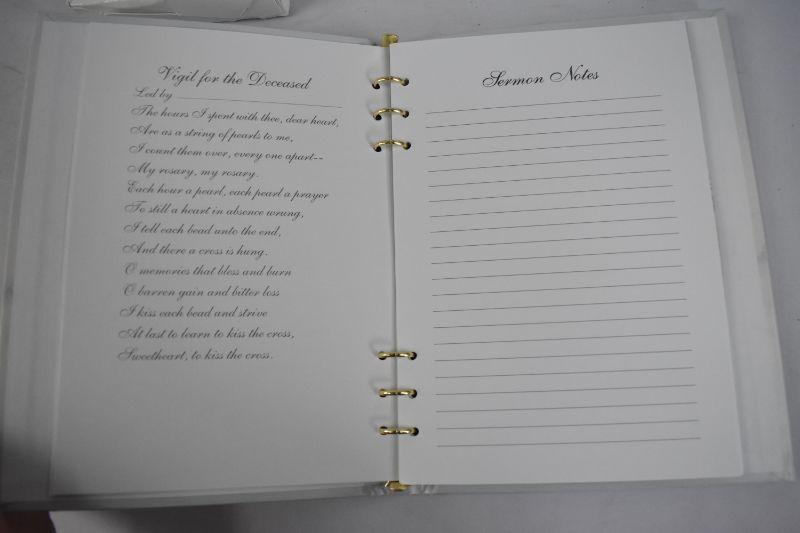 Vigil for the Deceased
Led by
The hours I spent with thee, dear heart,
Are as a string of pearls to me,
I count them over, every one apart--
My rosary, my rosary.
Each hour a pearl, each pearl a prayer
To still a heart in absence wrung,
I tell each bead unto the end,
And there a cross is hung.
O memories that bless and burn
O barren gain and bitter loss
I kiss each bead and strive
At last to learn to kiss the cross,
Sweetheart, to kiss the cross.
Sermon Notes